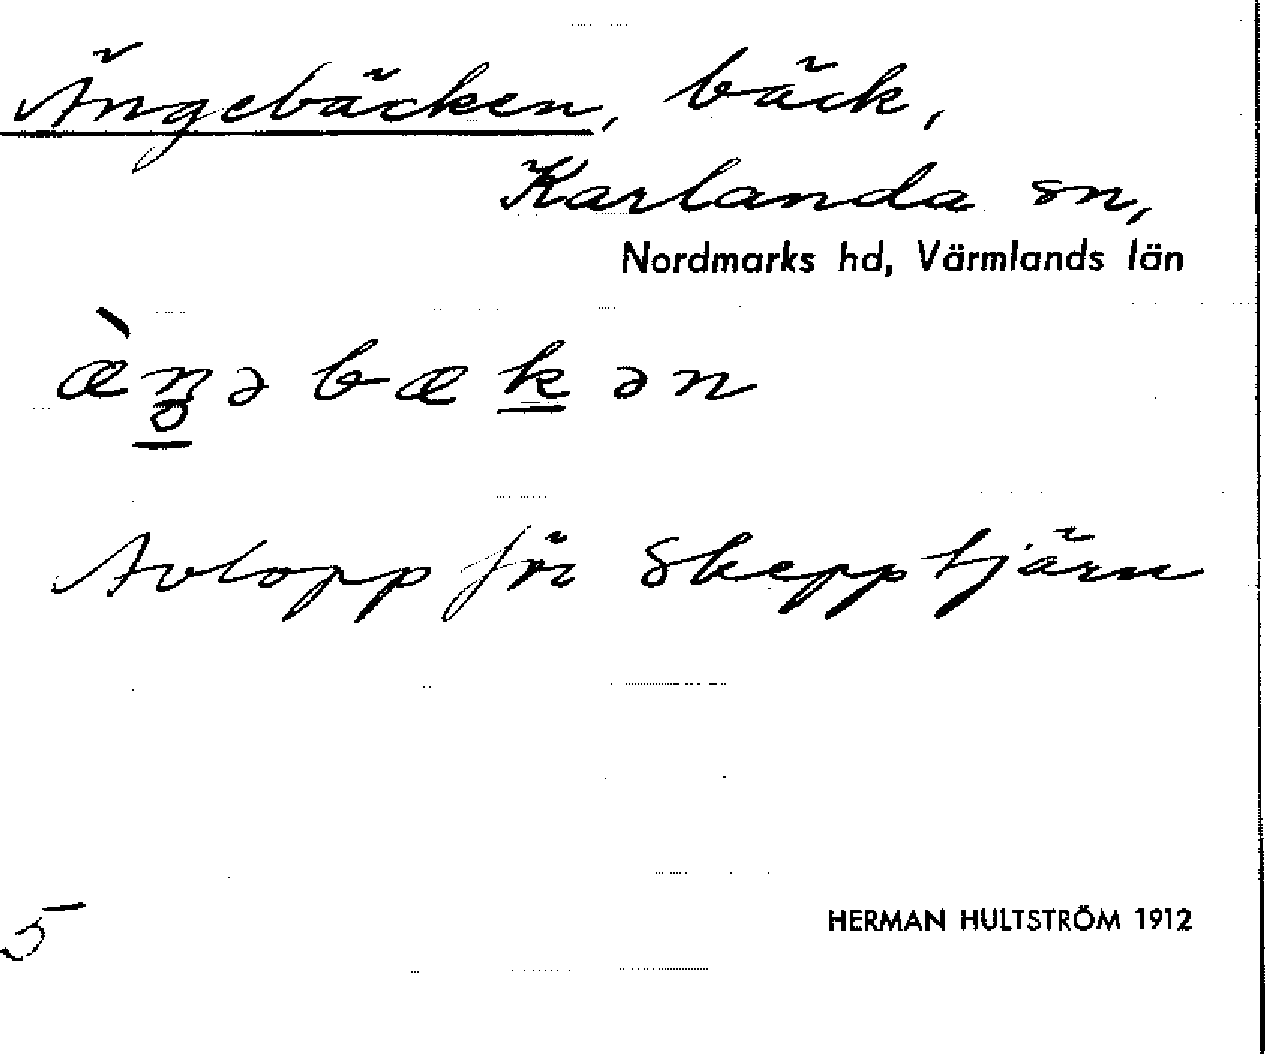 Ängebäcken, bäck,
Karlanda sn,
Nordmarks hd, Värmlands län
æ̀ŋəbækən
Avlopp för Skepptjärn
5
HERMAN HULTSTRÖM 1912